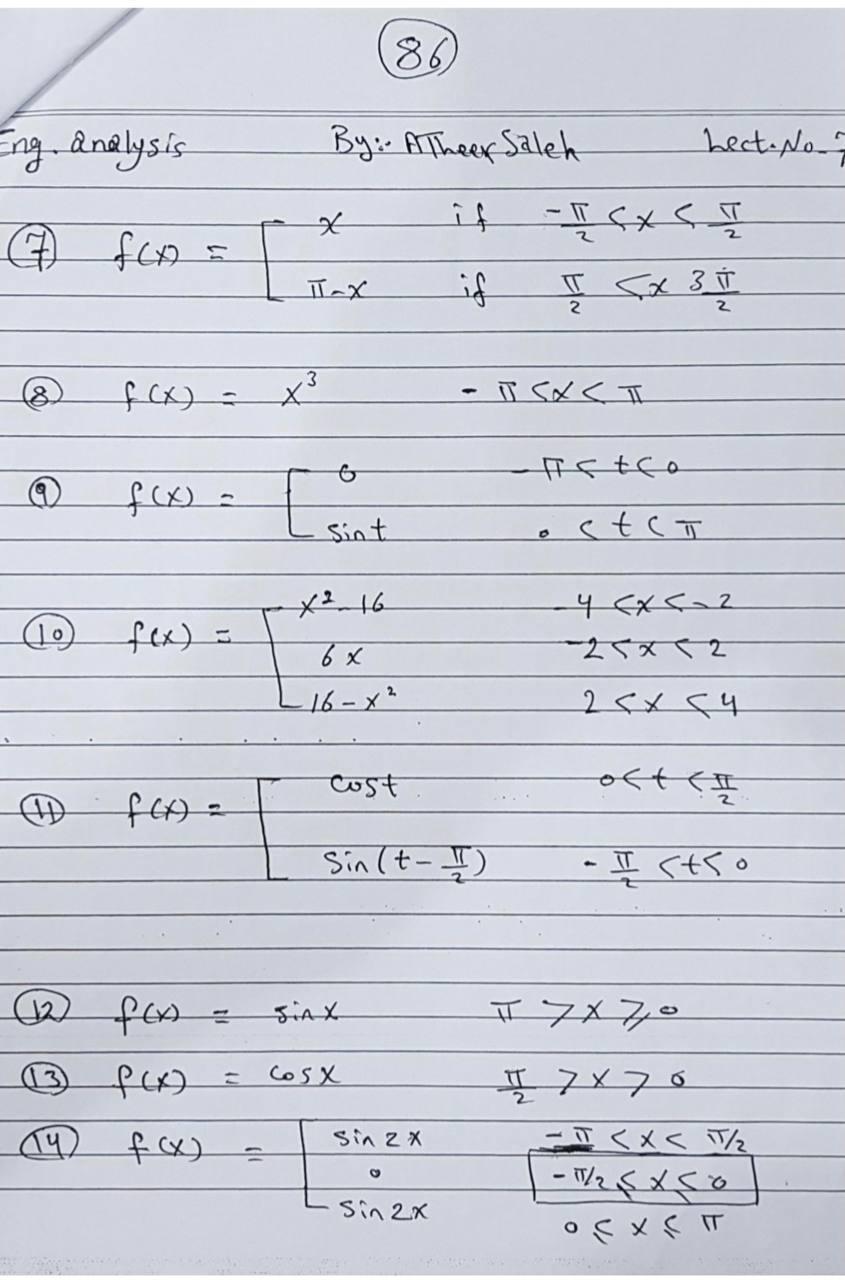 86
Eng. analysis By:- ATheer Saleh Lect. No_7
7 f(x) = [ x if -π/2 < x < π/2
π-x if π/2 < x 3π/2
8 f(x) = x³ - π < x < π
9 f(x) = [ 0 - π < t < 0
sin t 0 < t < π
10 f(x) = [ x²-16 -4 < x < -2
6x -2 < x < 2
16-x² 2 < x < 4
11 f(x) = [ cost 0 < t < π/2
Sin(t-π/2) - π/2 < t < 0
12 f(x) = sinx π > x ⩾ 0
13 f(x) = cosx π/2 > x > 0
14 f(x) = [ sin 2x -π < x < π/2
0 -π/2 ≤ x ≤ 0
sin 2x 0 ≤ x ≤ π